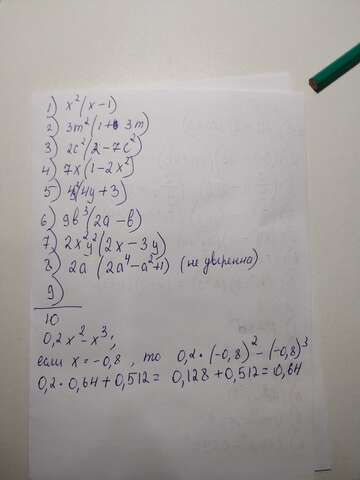 1) x²(x-1)
2) 3m²(1+3m)
3) 2c²(2-7c²)
4) 7x(1-2x²)
5) (4y+3)
6) 9b³(2a-b)
7) 2x²y²(2x-3y)
8) 2a (2a⁴-a²+1) (не уверенна)
9)
10
0,2x²-x³;
если x=-0,8, то 0,2·(-0,8)²-(-0,8)³
0,2·0,64+0,512= 0,128+0,512=0,64